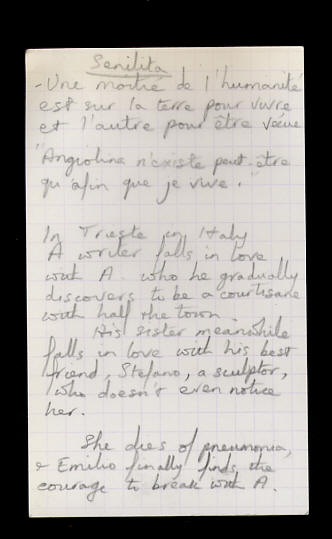 Senilita
- Une moitié de l'humanité
est sur la terre pour vivre
et l'autre pour être vécue
"Angiolina n'existe peut-être
qu'afin que je vive."
In Trieste in Italy
A writer falls in love
with A. who he gradually
discovers to be a courtisane
with half the town.
His sister meanwhile
falls in love with his best
friend, Stefano, a sculptor,
who doesn't even notice
her.
She dies of pneumonia,
& Emilio finally finds the
courage to break with A.